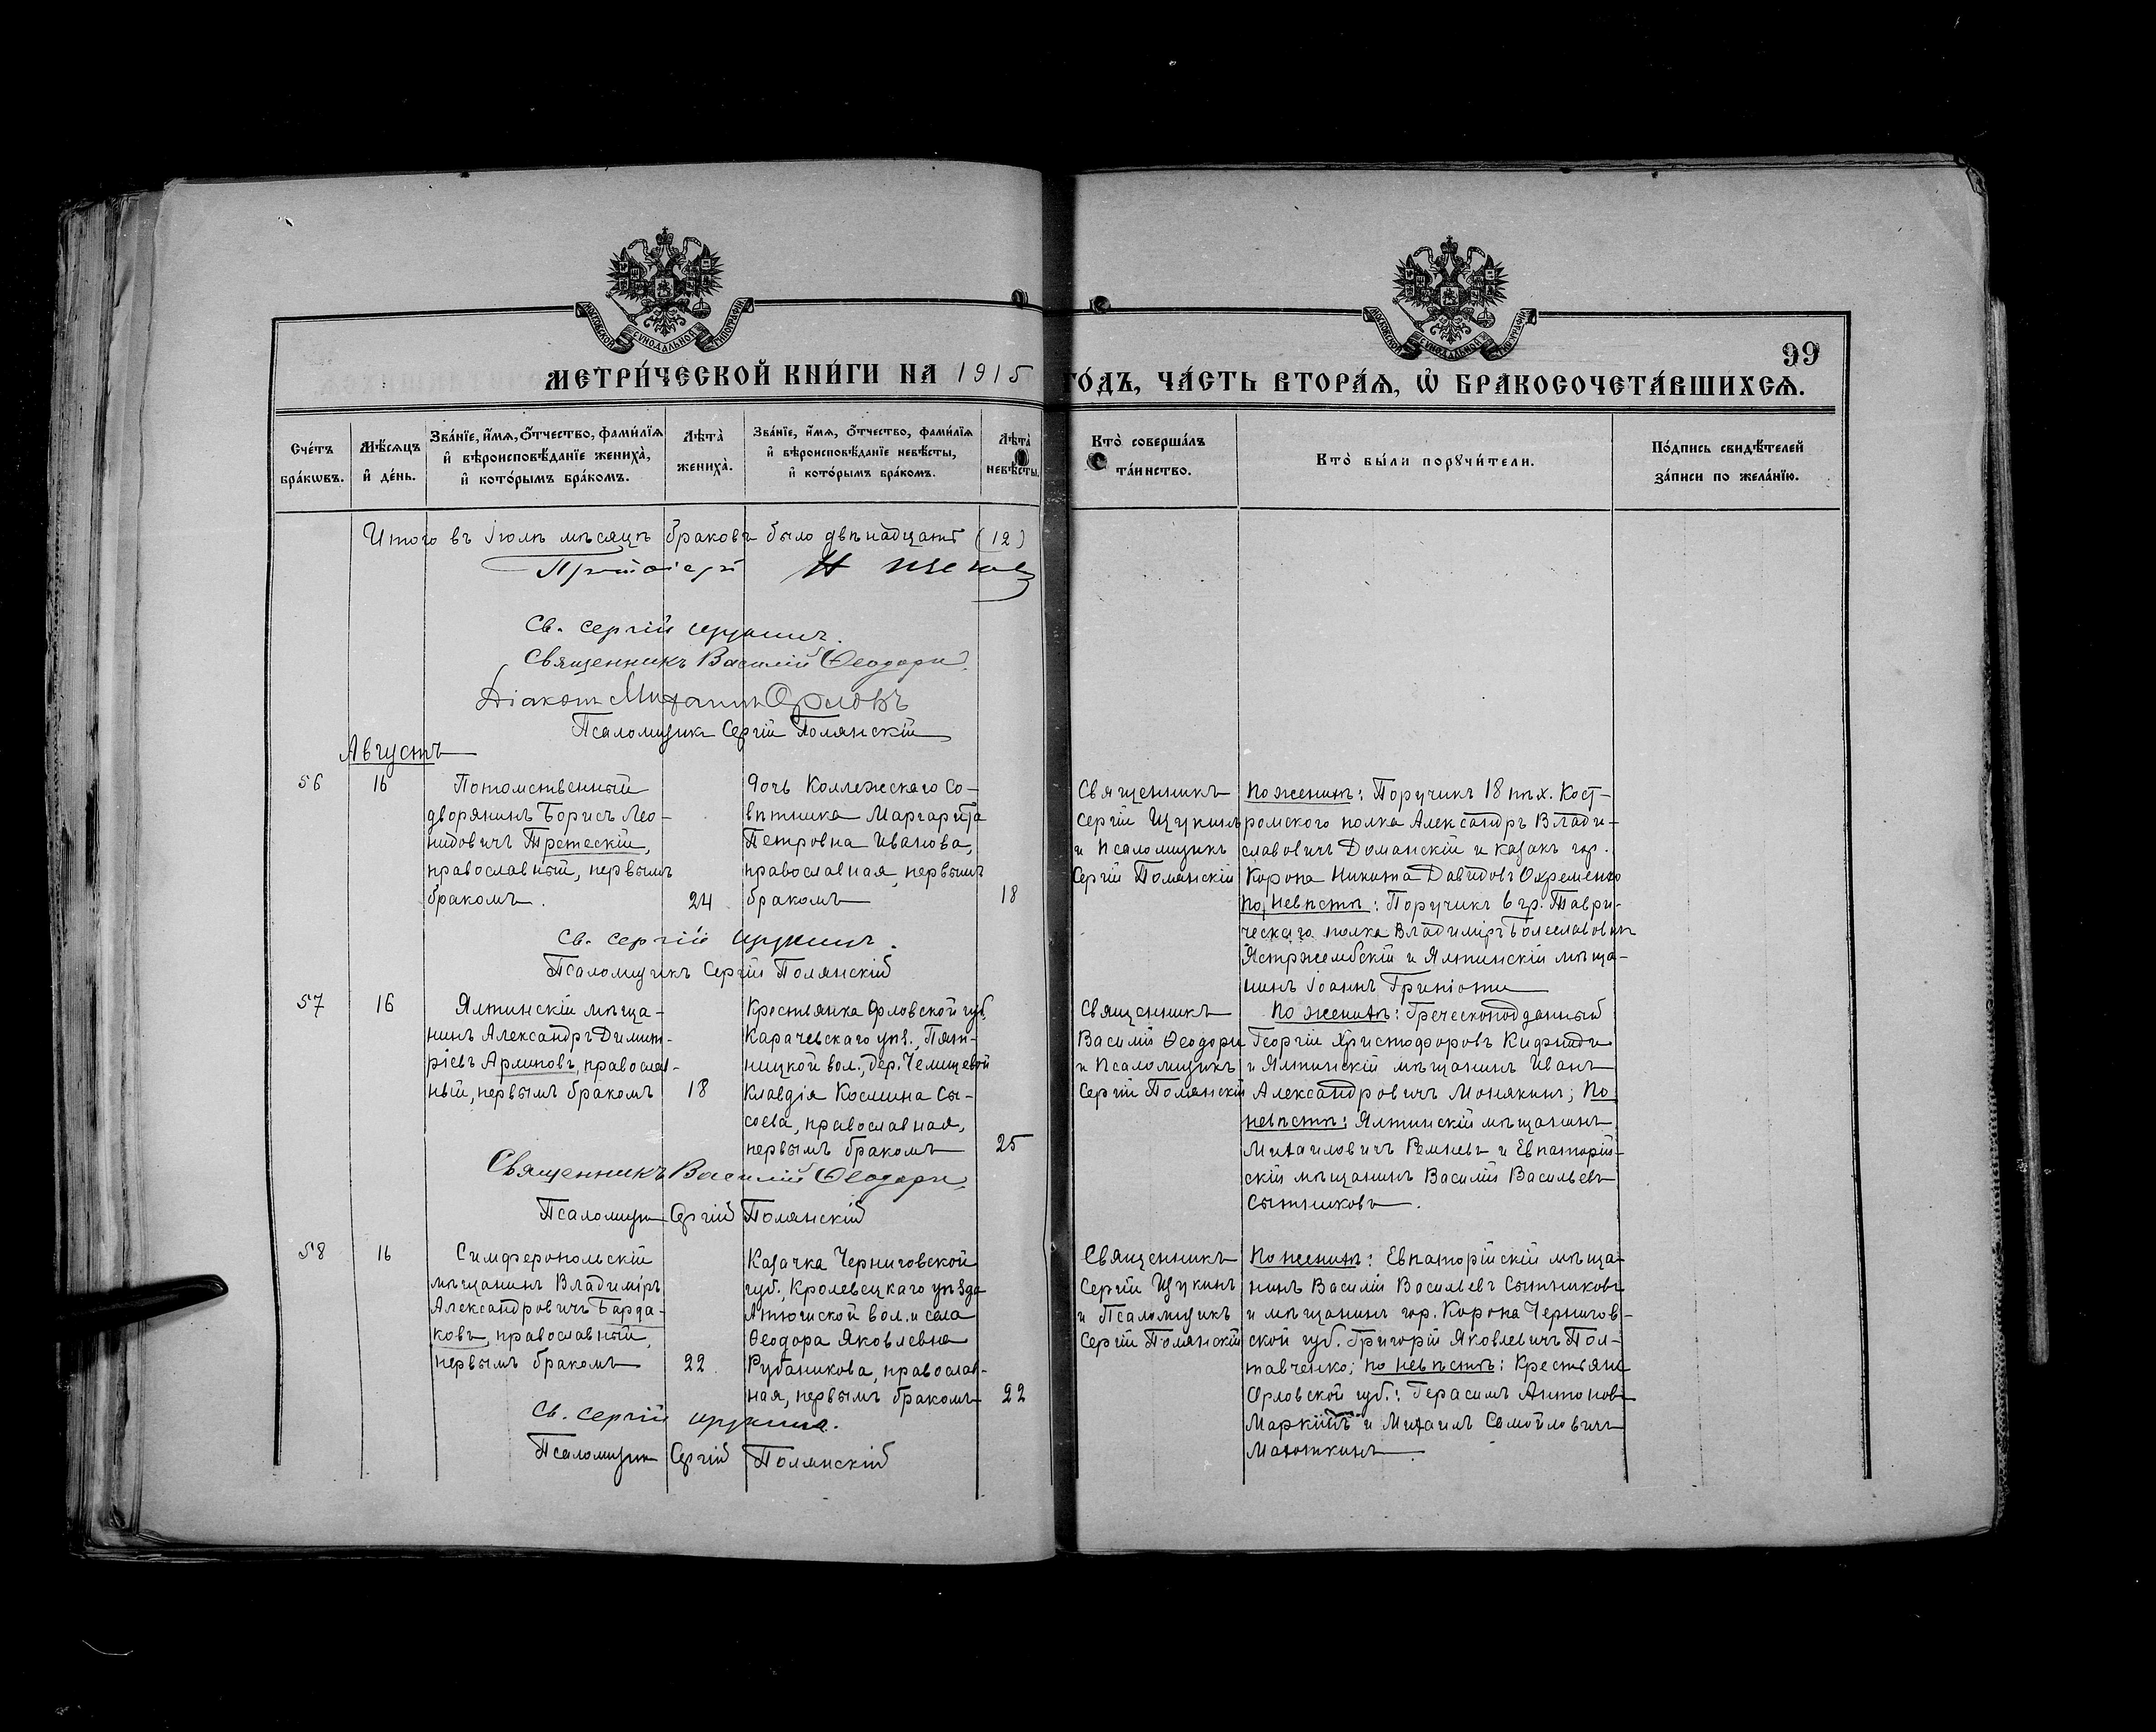 МОСКОВСКОЙ СѴНОДАЛЬНОЙ ТИПОГРАФІИ
МОСКОВСКОЙ СѴНОДАЛЬНОЙ ТИПОГРАФІИ
99
МЕТРИ́ЧЕСКОЙ КНИ́ГИ НА 1915 ГО́ДЪ, ЧА́СТЬ ВТОРА́Ѧ, Ѽ БРАКОСОЧЕТА́ВШИХСѦ.
Сче́тъ бра́кѡвъ.
Мѣ́сѧцъ и҆ де́нь.
Зва́нїе, и҆́мѧ, ѻ҆́тчество, фами́лїѧ
и҆ вѣроисповѣ́данїе жениха̀,
и҆ кото́рымъ бра́комъ.
Лѣта̀ жениха̀.
Зва́нїе, и҆́мѧ, ѻ҆́тчество, фами́лїѧ
и҆ вѣроисповѣ́данїе невѣ́сты,
и҆ кото́рымъ бра́комъ.
Лѣта̀ невѣ́сты.
Кто̀ соверша́лъ
та́инство.
Кто̀ бы́ли порꙋчи́тели.
По́дпись свидѣ́телей
за́писи по жела́нїю.
Итого въ Iюлѣ мѣсяцѣ браковъ было двѣнадцать (12)
Протоіерей
Св. Сергій Щукинъ.
Священникъ Василій Ѳеодори
Діаконъ Михаилъ Орловъ
Псаломщикъ Сергій Полянскій
Августъ
56
16
Потомственный
дворянинъ Борисъ Лео-
нидовичъ Третескій,
православный, первымъ
бракомъ.
24
Дочь Коллежскаго Со-
вѣтника Маргарита
Петровна Иванова,
православная, первымъ
бракомъ
18
Священникъ
Сергій Щукинъ
и Псаломщикъ
Сергій Полянскій
По женихѣ: Поручикъ 18 пѣх. Кост-
ромского полка Александръ Влади-
славовичъ Доманскій и казакъ гор.
Коропа Никита Давидовъ Охременко
По невѣстѣ: Поручикъ 6 гр. Таври-
ческаго полка Владиміръ Болеславовичъ
Ястржембскій и Ялтинскій мѣща-
нинъ Іоаннъ
Св. Сергій Щукинъ.
Псаломщикъ Сергій Полянскій
57
16
Ялтинскій мѣща-
нинъ Александръ Димит-
ріевъ Арминовъ, православ-
ный, первымъ бракомъ
18
Крестьянка Орловской губ.
Карачевскаго уѣз., Пят-
ницкой вол., дер. Челищевой
Клавдія Космина Сы-
соева, православная,
первымъ бракомъ
25
Священникъ
Василій Ѳеодори
и Псаломщикъ
Сергій Полянскій
По женихѣ: Греческоподданный
Георгій Христофоровъ
и Ялтинскій мѣщанинъ Иванъ
Александровичъ Монякинъ; По
невѣстѣ: Ялтинскій мѣщанинъ
Михаиловичъ и Евпаторій-
скій мѣщанинъ Василій Васильевъ
Сытниковъ.
Священникъ Василій Ѳеодори
Псаломщикъ Сергій Полянскій
58
16
Симферопольскій
мѣщанинъ Владиміръ
Александровичъ Барда-
ковъ, православный,
первымъ бракомъ
22
Казачка Черниговской
губ. Кролевецкаго уѣзда
вол. и села
Ѳеодора Яковлевна
Рубаникова, православ-
ная, первымъ бракомъ
22
Священникъ
Сергій Щукинъ
и Псаломщикъ
Сергій Полянскій
По женихѣ: Евпаторійскій мѣща-
нинъ Василій Васильевъ Сытниковъ
и мѣщанинъ гор. Коропа Чернигов-
ской губ. Григорій Яковлевичъ Пол-
тавченко; по невѣстѣ: Крестьяне
Орловской губ.: Герасимъ Антоновъ
Маркинъ и Михаилъ Самойловичъ
Матюткинъ
Св. Сергій Щукинъ.
Псаломщикъ Сергій Полянскій